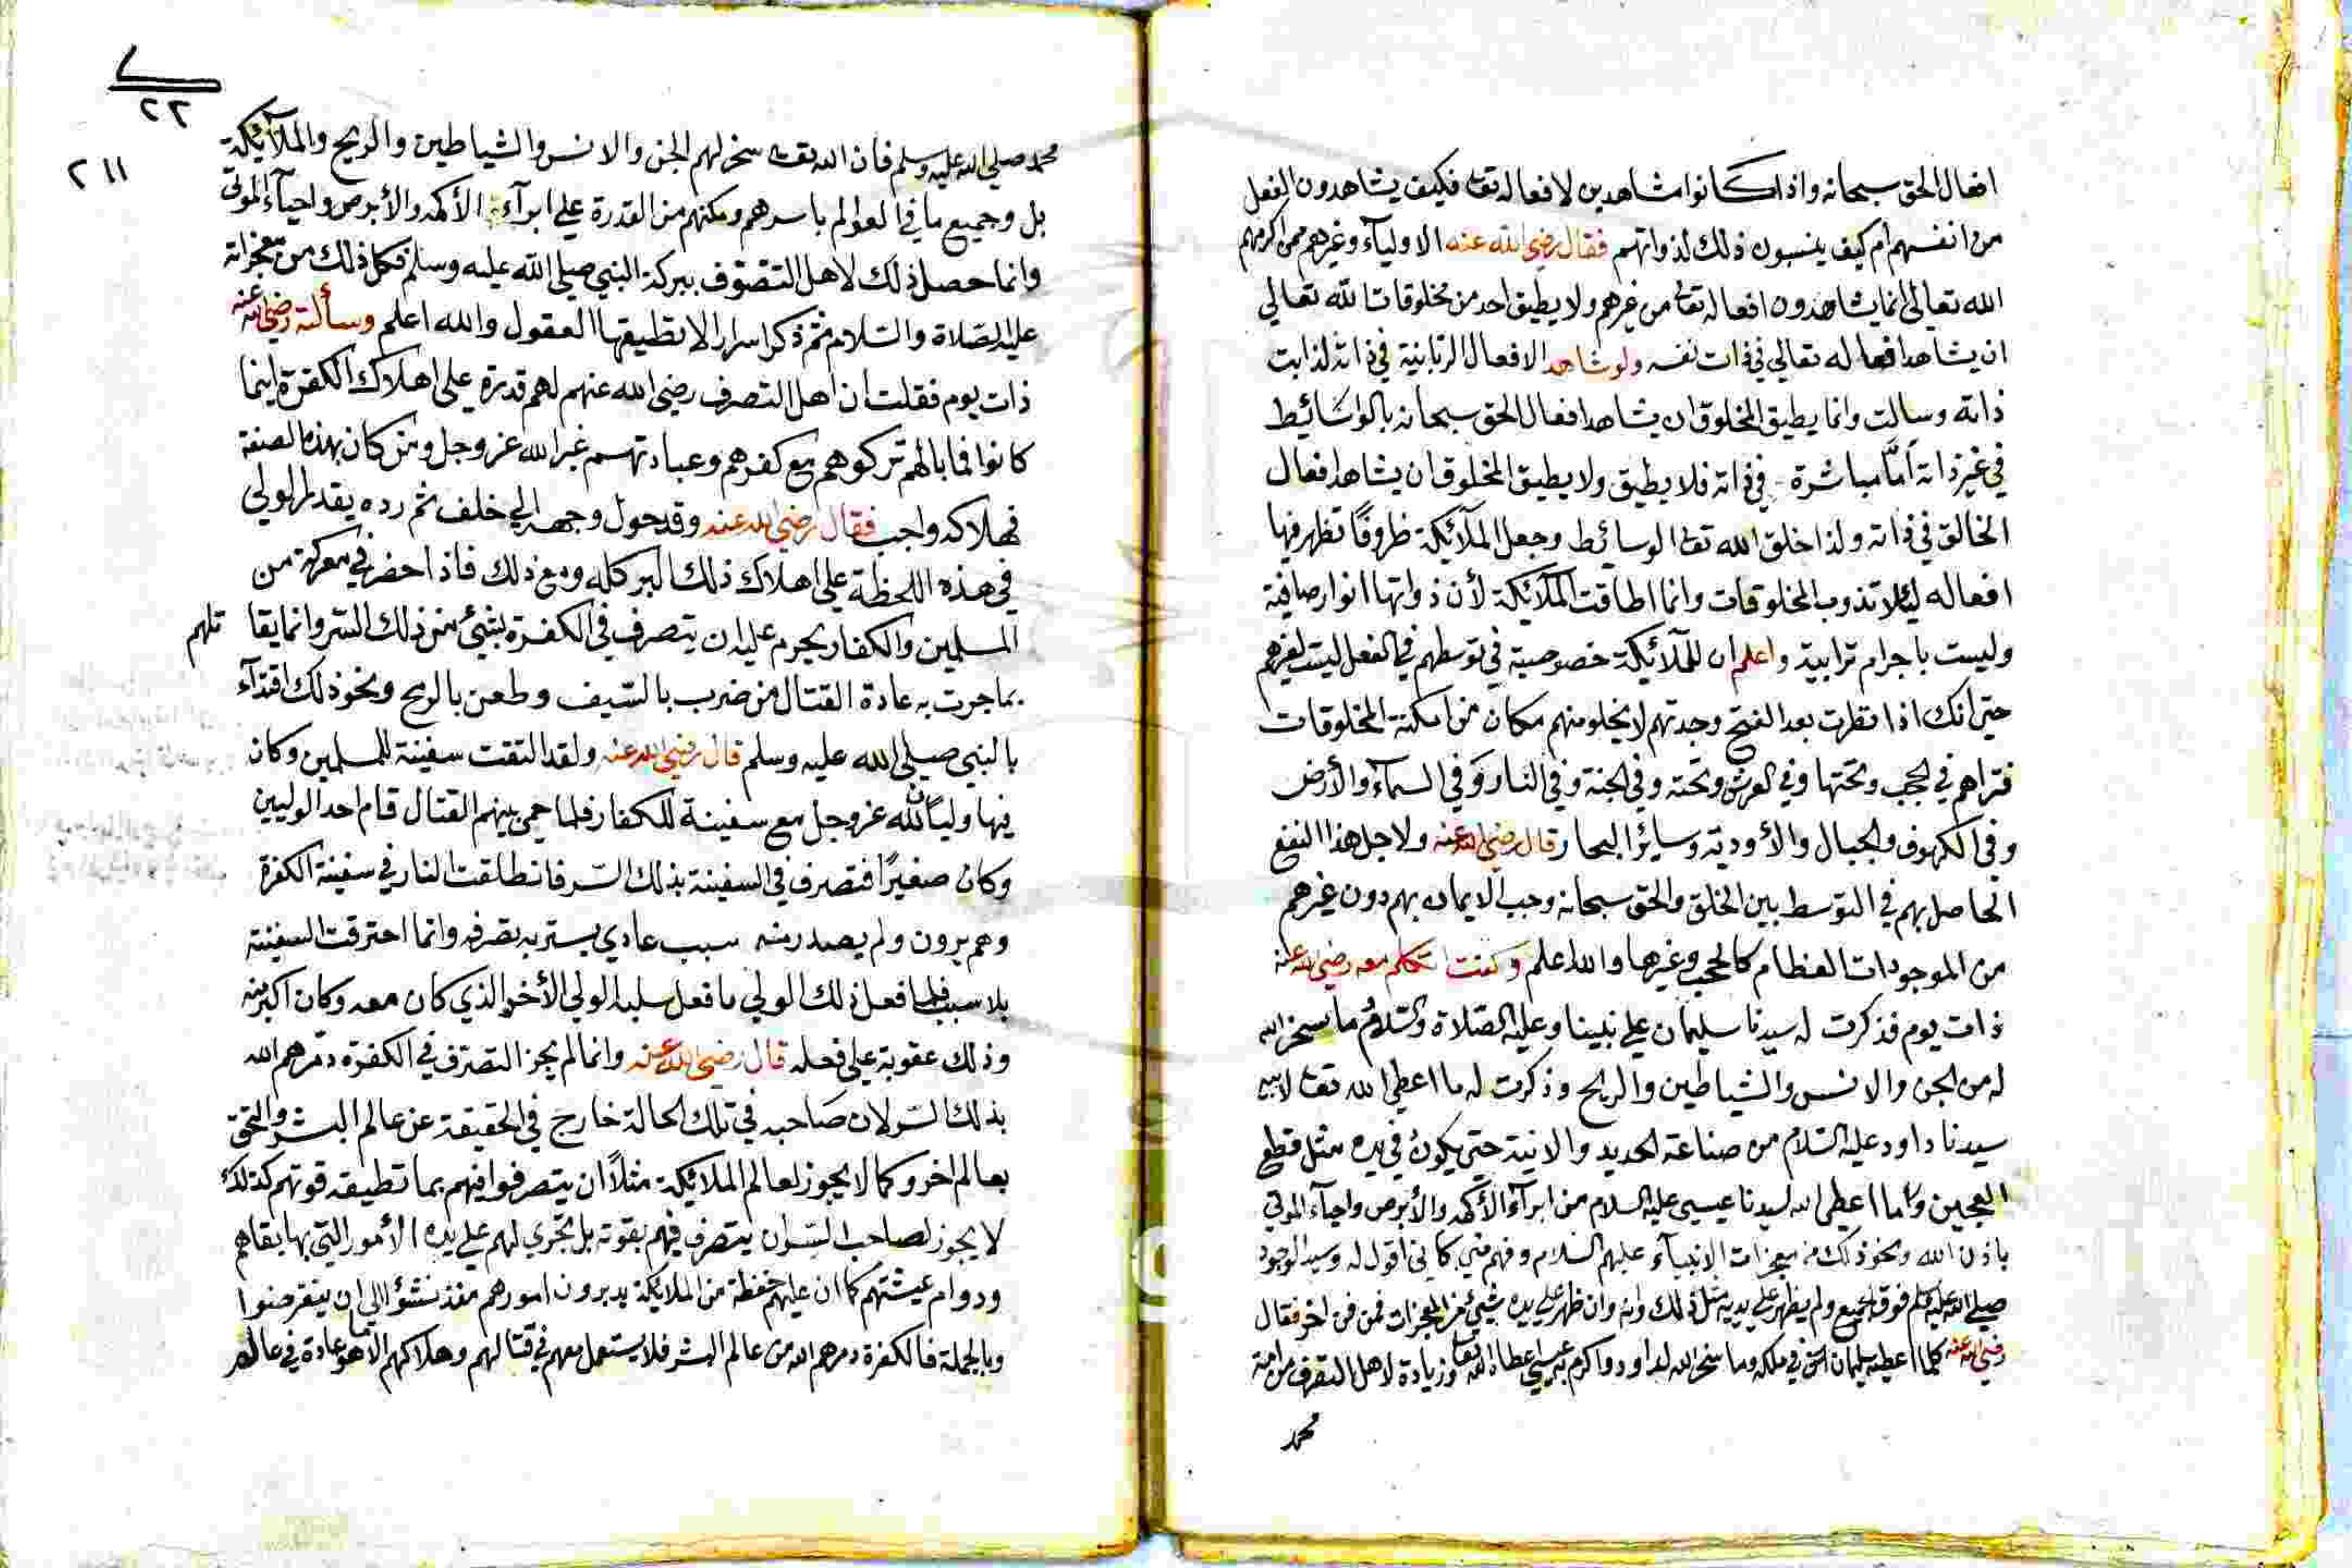 افعال الحق سبحانه واذا كانوا مشاهدين لافعاله تعا فكيف يشاهدون الفعل
من انفسهم ام كيف ينسبون ذلك لذواتهم فقال رضي الله عنه الاولياء وغيرهم ممن اكرمهم
الله تعالى انما يشاهدون افعاله تعا من غيرهم ولا يطيق احد من مخلوقات الله تعالي
ان يشاهد افعاله تعالي في ذات نفسه ولو شاهد الافعال الربانية في ذاته لذابت
ذاته وسالت وانما يطيق المخلوق ان يشاهد افعال الحق سبحانه بالوسائيط
في غير ذاته امّا مباشرة في ذاته فلا يطيق ولا يطيق المخلوق ان يشاهد افعال
الخالق في ذاته ولذا خلق الله تعا الوسائط وجعل الملآئكة ظروفًا تظهر فيها
افعاله ليئلا تذوب المخلوقات وانما اطاقت الملآئكة لأن ذواتها انوار صافية
وليست باجرام ترابية واعلم ان للملآئكة خصوصية في توسطهم في الفعل ليست لغيرهم
حتى انك اذا نظرت بعد الفتح وجدتهم لا يخلو منهم مكان من امكنة المخلوقات
فتراهم في الحجب وتحتها وفي العرش وتحته وفي الجنة وفي النار وفي السمآء والأرض
وفي الكهوف والجبال والأودية وسائر البحار قال رضي الله عنه ولاجل هذا النفع
الحاصل بهم في التوسط بين الخلق والحق سبحانه وجب الايمان بهم دون غيرهم
من الموجودات العظام كالحجب وغيرها والله اعلم وكنت اتكلم معه رضي الله عنه
ذات يوم فذكرت له سيدنا سليمان علي نبينا وعليه الصّلاة والسّلام ما سخر الله
له من الجن والانس والشياطين والريح وذكرت له ما اعطى الله تعا لابيه
سيدنا داود عليه السّلام من صناعة الحديد والانية حتى يكون في يده مثل قطع
العجين وما اعطى الله لسيدنا عيسى عليه السلام من ابرآء الأكمه والأبرص واحيآء الموتي
باذن الله ونحو ذلك من معجزات الانبيآء عليهم السّلام وفهم مني كاني اقول له وسيد الوجود
صلى الله عليه وسلم فوق الجميع ولم يظهر علي يديه مثل ذلك وانه وان ظهر علي يده شيئ من المعجزات فمن فن اخر فقال
رضي الله عنه كلما اعطيه سليمان في ملكه وما سخر الله لداود واكرم به عيسى اعطاه الله تعا وزيادة لاهل التصرف من امة
محمد
٢٢
٢١١
محمد صلى الله عليه وسلم فان الله تعا سخر لهم الجن والانس والشياطين والريح والملآئيكة
بل وجميع ما في العوالم باسرهم ومكنهم من القدرة علي ابرآء الأكمه والأبرص واحيآء الموتى
وانما حصل ذلك لاهل التصوّف ببركة النبي صلى الله عليه وسلم فكل ذلك من معجزاته
عليه الصّلاة والسّلام ثم ذكر اسرار لا تطيقها العقول والله اعلم وسألته رضي الله عنه
ذات يوم فقلت ان اهل التصرف رضي الله عنهم لهم قدرة على اهلاك الكفرة اينما
كانوا فما بالهم تركوهم مع كفرهم وعبادتهم غير الله عز وجل ومن كان بهذه الصفة
فهلاكه واجب فقال رضي الله عنه وقد حول وجهه الي خلف ثم رده يقدر الولي
في هذه اللحظة على اهلاك ذلك البر كله ومع ذلك فاذا حضر في معركة من
المسلمين والكفار يحرم عليه ان يتصرف في الكفرة بشيئ من ذلك السّر وانما يقا تلهم
بما جرت به عادة القتال من ضرب بالسّيف وطعن بالرمح ونحو ذلك اقتدآء
بالنبي صلى الله عليه وسلم قال رضي الله عنه ولقد التقت سفينة للمسلمين وكان
فيها وليان لله عز وجل مع سفينة للكفار فلما حمى بينهم القتال قام احد الوليين
وكان صغيرًا فتصرف في السفينة بذلك السّر فانطلقت النار في سفينة الكفرة
وهم يرون ولم يصدر منه سبب عادي يستر به تصرفه وانما احترقت السفينة
بلا سبب فلما فعل ذلك الولي ما فعل سلبه الولي الأخر الذي كان معه وكان اكبر منه
وذلك عقوبة على فعله قال رضي الله عنه وانما لم يجز التصرف في الكفرة دمرهم الله
بذلك السّر لان صَاحبه في تلك الحالة خارج في الحقيقة عن عالم البشر والتحق
بعالم اخر وكما لا يجوز لعالم الملائيكة مثلاً ان يتصرفوا فيهم بما تطيقه قوتهم كذلك
لا يجوز لصاحب السّر ان يتصرف فيهم بقوته بل يجري لهم علي يده الأمور التي بها بقاهم
ودوام عيشتهم كما ان عليهم حفظة من الملائيكة يدبرون امورهم منذ نشئوا الي ان ينقرضوا
وبالجملة فالكفرة دمرهم الله من عالم البشر فلا يستعمل معهم في قتالهم وهلاكهم الا ما هو عادة في عالمهم